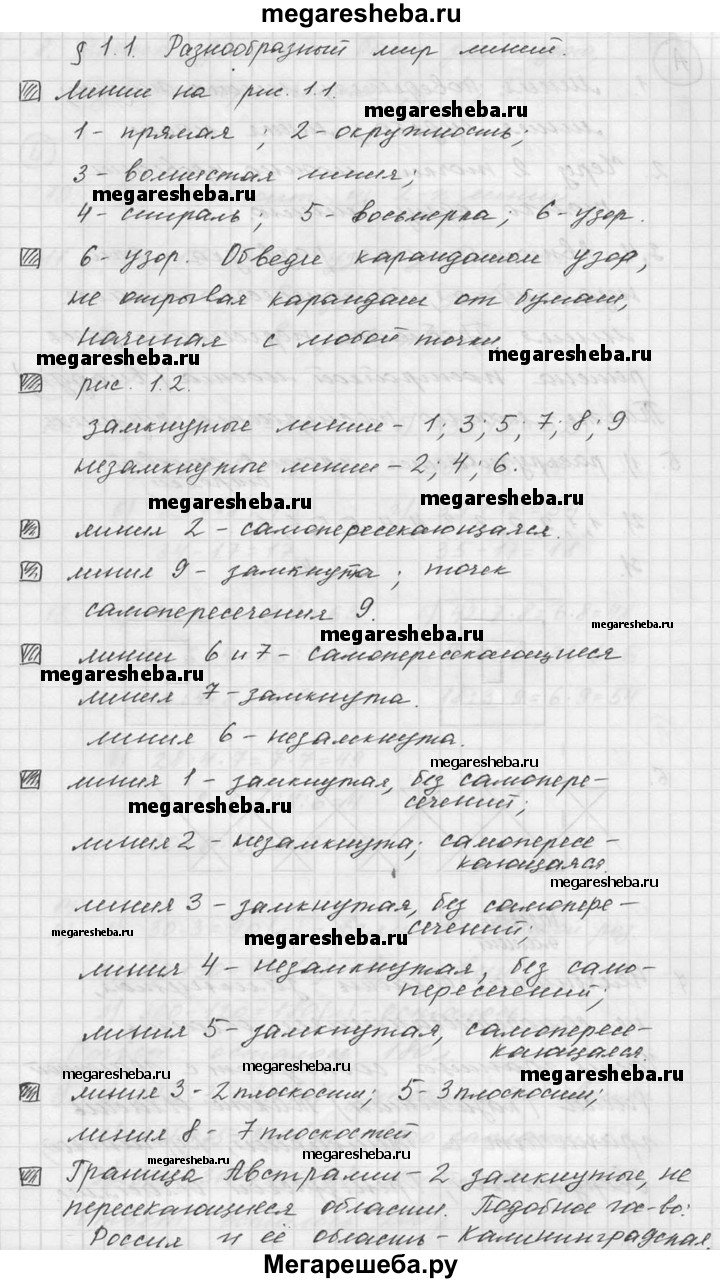 megaresheba.ru
§ 1.1. Разнообразный мир линий.
Линии на рис. 1.1.
megaresheba.ru
1 - прямая ; 2 - окружность;
3 - волнистая линия;
megaresheba.ru
4 - спираль; 5 - восьмерка; 6 - узор.
6 - узор. Обведи карандашом узор,
не отрывая карандаш от бумаги,
начиная с любой точки
megaresheba.ru megaresheba.ru
рис. 1.2.
замкнутые линии - 1; 3; 5; 7; 8; 9
незамкнутые линии - 2; 4; 6.
megaresheba.ru megaresheba.ru
линия 2 - самопересекающаяся.
линия 9 - замкнута ; точек
самопересечения 9.
megaresheba.ru megaresheba.ru
линии 6 и 7 - самопересекающиеся
megaresheba.ru
линия 7 - замкнута.
линия 6 - незамкнута.
megaresheba.ru
линия 1 - замкнутая, без самопере-
сечений;
megaresheba.ru
линия 2 - незамкнута; самопересе-
кающаяся.
megaresheba.ru
линия 3 - замкнутая, без самопере-
сечений;
megaresheba.ru megaresheba.ru
линия 4 - незамкнутая, без само-
пересечений;
линия 5 - замкнутая, самопересе-
кающаяся.
megaresheba.ru megaresheba.ru megaresheba.ru
линия 3 - 2 плоскости; 5 - 3 плоскости;
линия 8 - 7 плоскостей
megaresheba.ru megaresheba.ru
Граница Австралии - 2 замкнутые, не
пересекающиеся области. Подобное гос-во:
Россия и её область - Калининградская.
Мегарешеба.ру